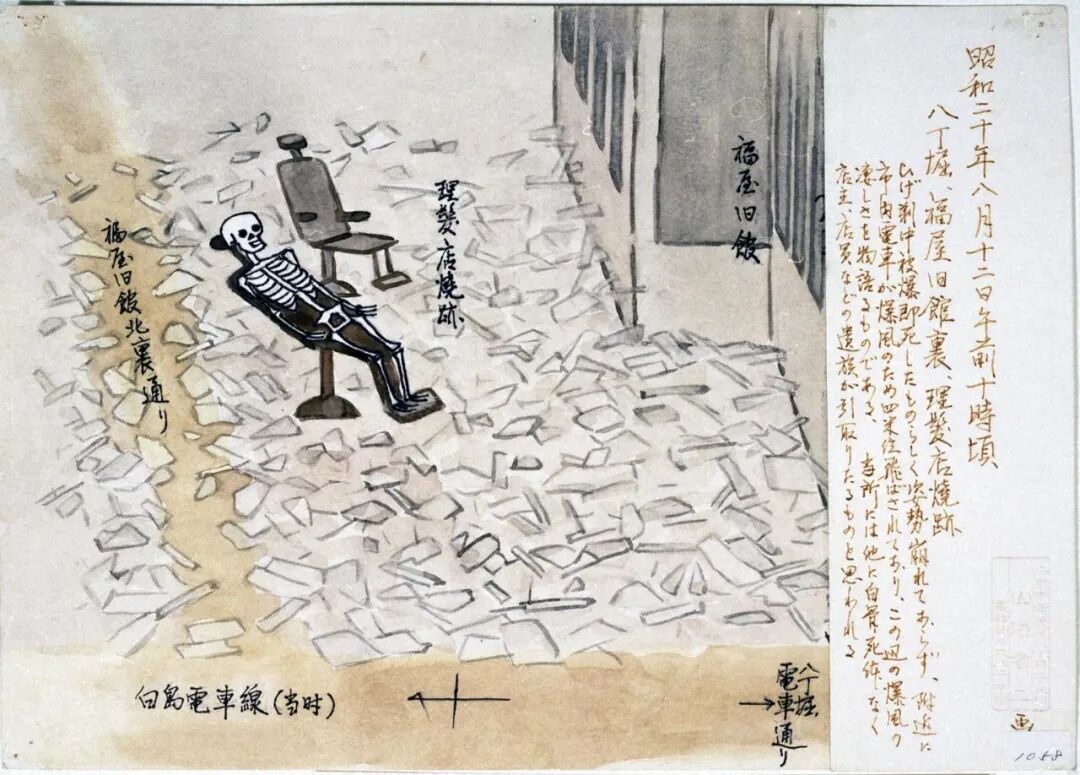 昭和二十年八月十二日午前十時頃
八丁堀、福屋旧館裏 理髪店焼跡
ひげ剃中被爆即死したものらしく姿勢崩れてあらず、附近に
市内電車が爆風のため四米位飛ばされており、この辺の爆風の
凄しさを物語るものである、当所には他に白骨死体なく
店主、店員などの遺族が引取りたるものと思われる
画
1058
福屋旧館
理髪店焼跡
福屋旧館北裏通り
白島電車線(当时)
八丁堀
電車通り